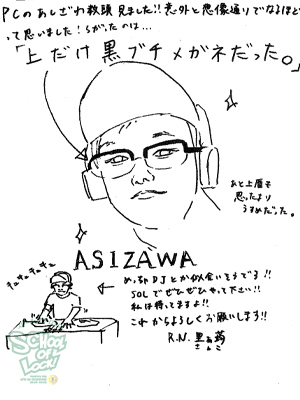 PCのあしざわ教頭見ました!!意外と想像通りでなるほど
って思いました!ちがったのは…
「上だけ黒ブチメガネだった。」
あと上唇も
思ったより
うすめだった。
ASIZAWA
チュクチュクチュク
めっちゃDJとか似合いそうです!!
SOLでぜひぜひやって下さい!!
私は待ってますよ!!
これからよろしくお願いします!!
R.N. 黒
SCHOOL OF LOCK!